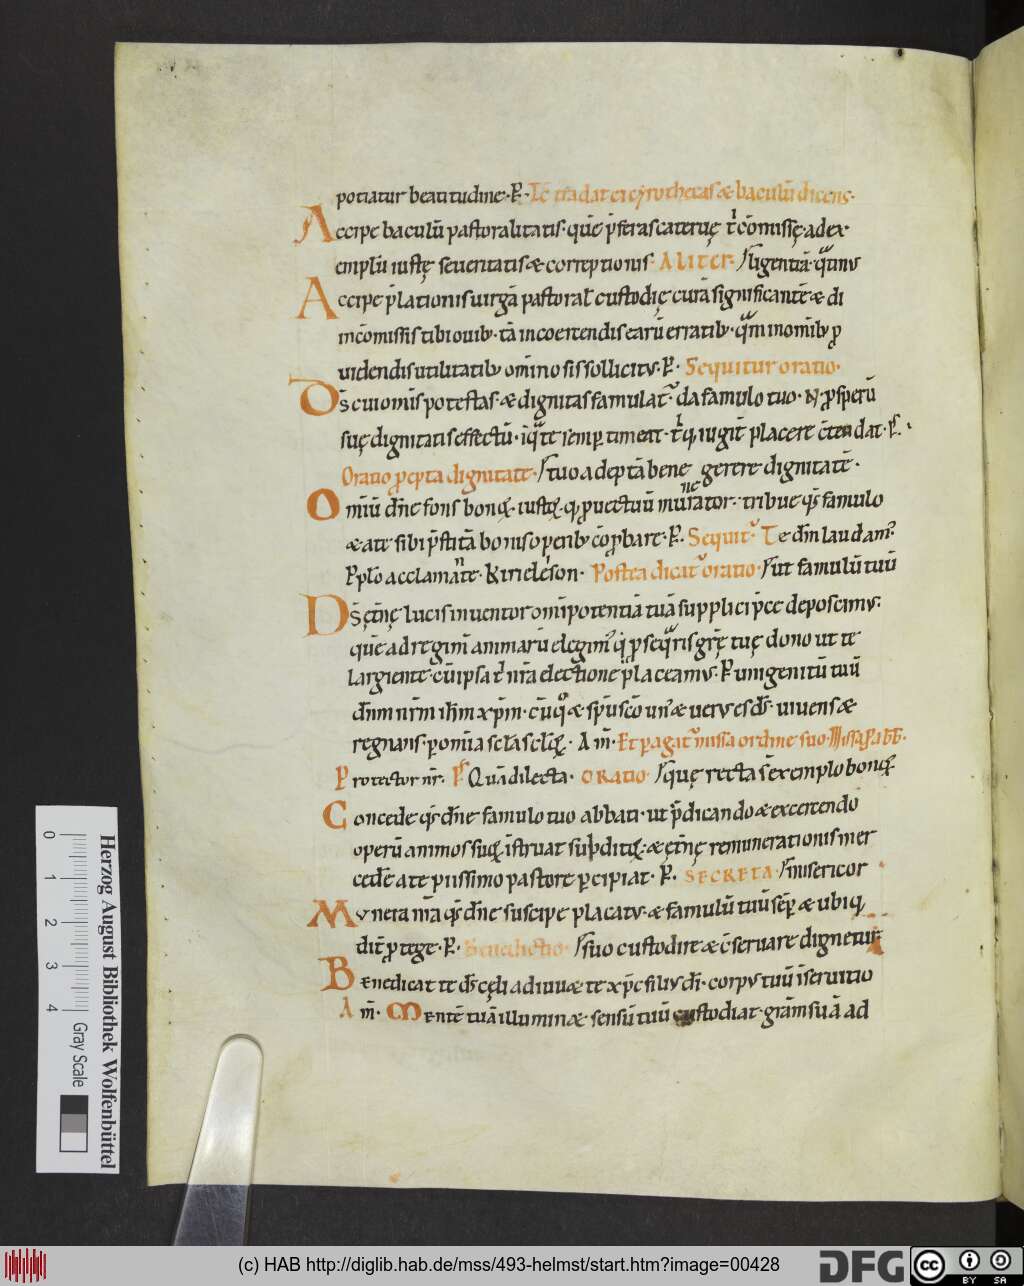 potiatur beatitudine· P̲· Ic̄ tradat ei cyrothecas & baculū dicens·
Accipe baculū pastoralitatis· quē p̄feras cateruę t̍ cōmissę ad ex-
emplū iustę seueritatis & correptionis· ALITER· /ligentiā· q̄tinus
Accipe p̄lationis uirgā pastoral̄ custodię curā significantē & di
in cōmissis tibi ouib; tā in coercendis earū erratib; q̄m in om̄ib; p
uidendis utilitatib; om̄ino sis sollicitus· P̲· Sequitur oratio·
Ds̄ cui om̄is potestas· & dignitas famulat᷑· da famulo tuo· N· prosperū
suę dignitatis effectū· ī q̄ te semp̲ timeat· t̍q; iugit̄ placere c̄tendat· P̲·
Oratio p̲cepta dignitate· /tuo adeptā bene gerere dignitatē·
Om̄iū dn̄e fons bonoꝝ· iustoꝝ q; prouectuū munerator· tribue q̄s famulo
& a te sibi p̄stitā bonis operib; cōprobare· P̲· Sequit᷑ Te dm̄ laudam᷒
P̲ p̄lo acclamante· Kirieleison· Postea dicit᷑ oratio· /ut famulū tuū
Ds̄ ęt̄nę lucis inuentor om̄ipotentiā tuā supplici p̄ce deposcimus·
quē ad regim̄ animarū elegim᷒
largiente· cū ipsa t̍ nr̄a electione placeamus· P̲ unigenitū tuū
dn̄m nr̄m ih̄m xp̄m· cū q̊ & sp̄u sc̄o un᷒ & uerus es ds̄· uiuens &
regnans· p̲ om̄ia sc̄la sc̄loꝝ· Am̄· Et p̲agat᷑ missa ordine suo· Missa p̲ abb̄·
Protector nr̄· P̄s Quā dilecta· ORATIO /quę recta s̄ exemplo bonoꝝ
Concede q̄s dn̄e famulo tuo abbati· ut p̄dicando & exercendo
operū animos suoꝝ īstruat subditoꝝ· & ęt̄nę remunerationis mer
cedē a te piissimo pastore p̲cipiat· P̲· SECRETA· /misericor
Munera nr̄a q̄s dn̄e suscipe placatus· & famulū tuū sēp̲ & ubiq;
dit̄ protege· P̲· Benedictio· /suo custodire & c̄seruare dignetur
Benedicat te ds̄ cęli adiuuæ te xp̄c filius dī· corpus tuū ī seruitio
Am̄· Mentē tuā illuminæ· sensū tuū custodiat· grām suā ad
0 1 2 3 4
Herzog August Bibliothek Wolfenbüttel
Gray Scale
(c) HAB http://diglib.hab.de/mss/493-helmst/start.htm?image=00428
DFG
cc BY SA